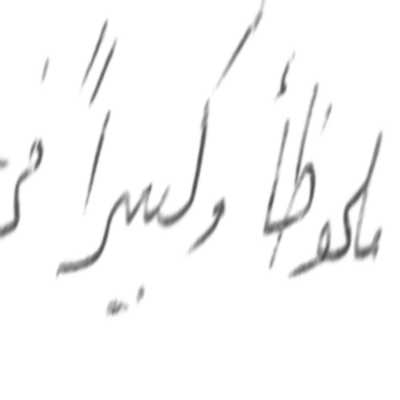 ملحوظاً وكبيراً